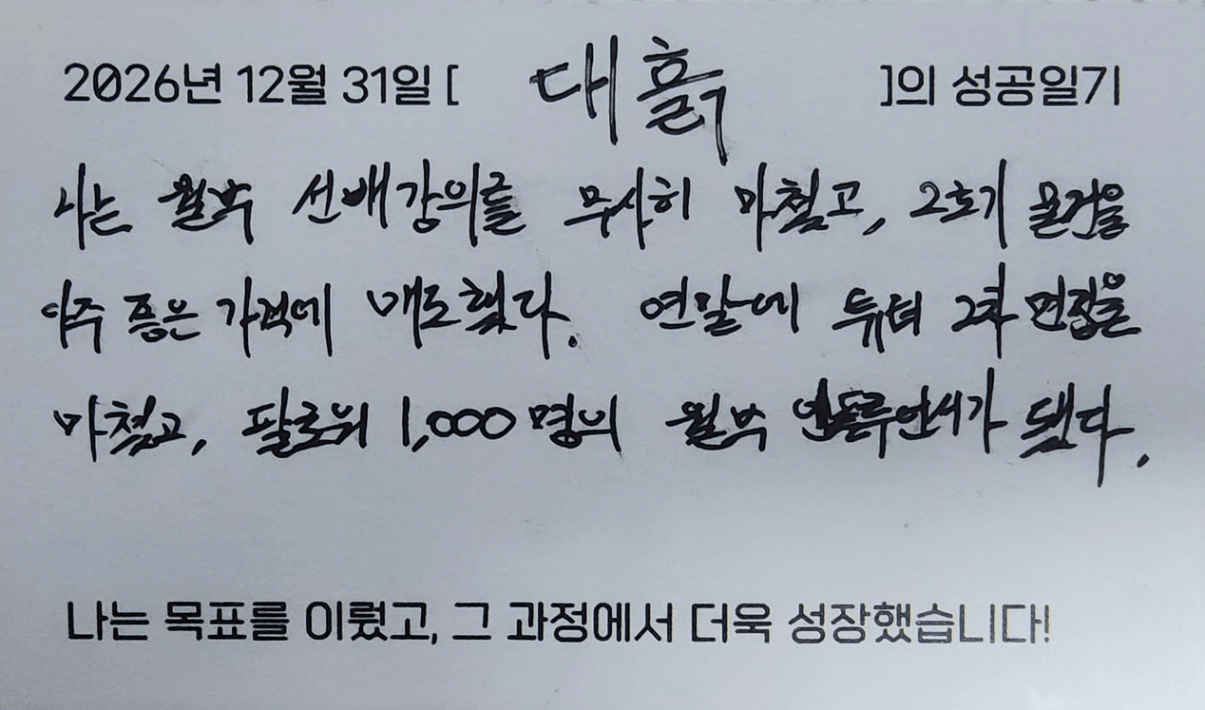 2026년 12월 31일 [ 대흙 ]의 성공일기
나는 월부 선배강의를 무사히 마쳤고, 2호기 물건을
아주 좋은 가격에 매도했다. 연말에 튜터 2차 면접을
마쳤고, 팔로워 1,000명의 월부 인플루언서가 됐다.
나는 목표를 이뤘고, 그 과정에서 더욱 성장했습니다!